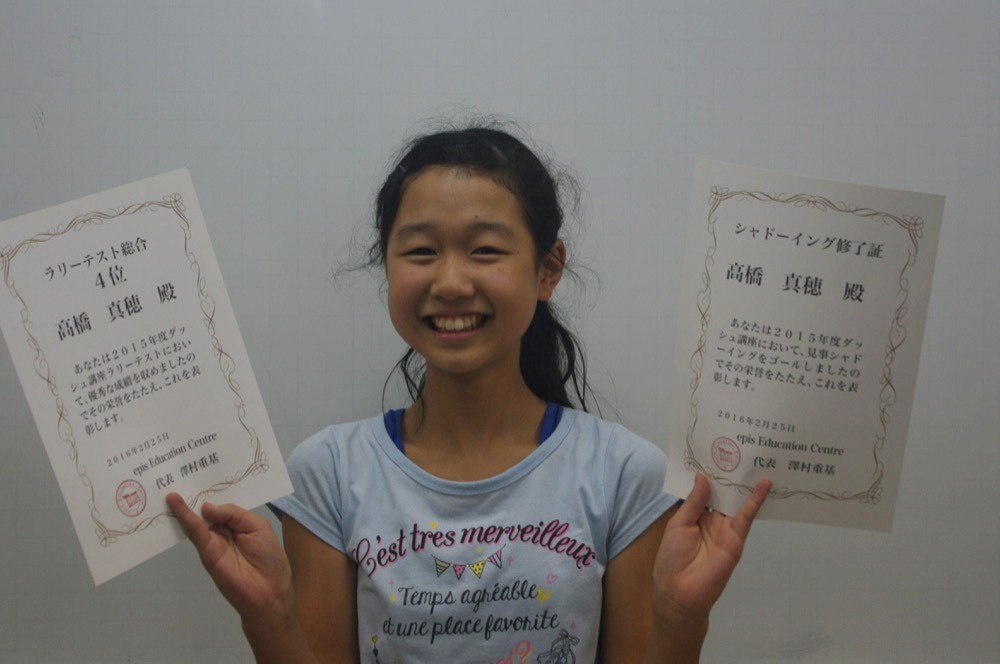 ラリーテスト総合
4位
高橋 真穂 殿
あなたは2015年度ダッ
シュ講座ラリーテストにおい
て、優秀な成績を収めましたの
でその栄誉をたたえ、これを表
彰します。
2016年2月25日
epis Education Centre
代表 澤村重基
シャドーイング修了証
高橋 真穂 殿
あなたは2015年度ダッ
シュ講座において、見事シャド
ーイングをゴールしましたの
でその栄誉をたたえ、これを表
彰します。
2016年2月25日
epis Education Centre
代表 澤村重基
C'est tres merveilleux
Temps agréable
et une place favorite